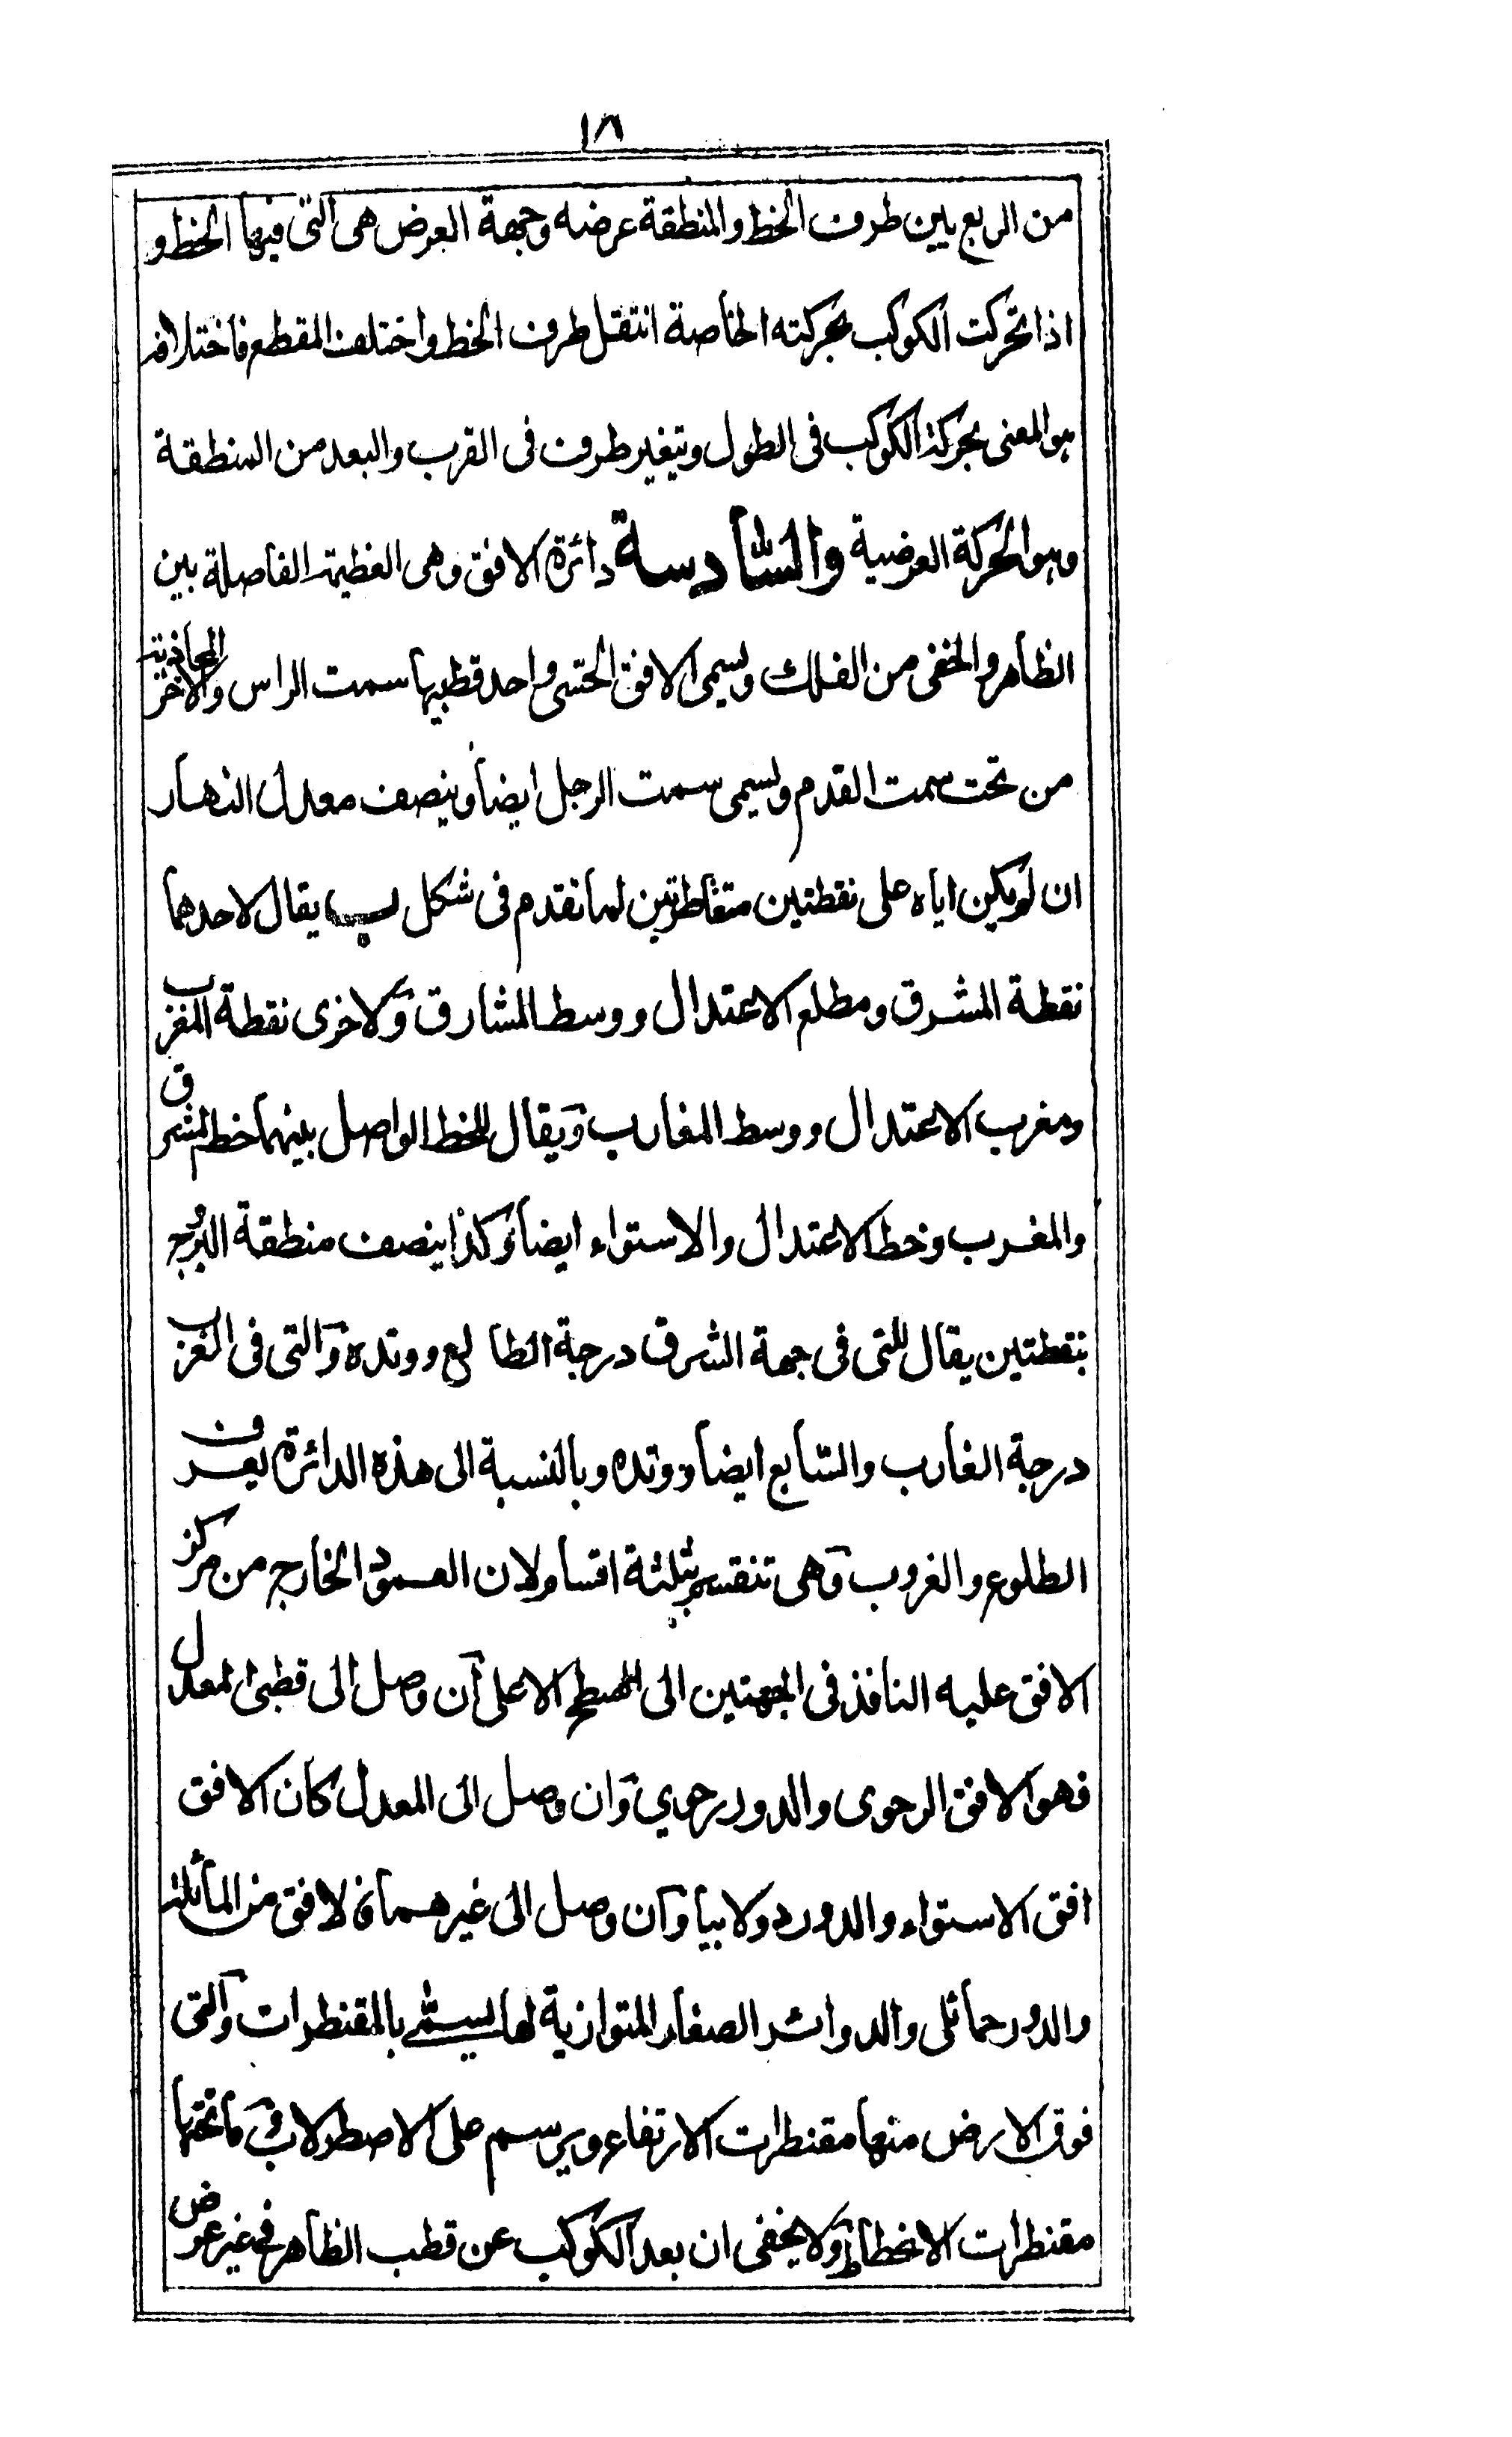 ١٨
من الربع بين طرف الخط والمنطقة عرضه وجهة العرض هى التى فيها الخط و
اذا تحركت الكوكب بحركته الخاصة انتقل طرف الخط واختلف المقطع فاختلافه
هو المعنى بحركة الكوكب فى الطول وتيغير طرف فى القرب والبعد من المنطقة
وهو الحركة العرضية والسادسة دائرة الافق وهى العظيمة الفاصلة بين
الظاهر والخفى من الفلك ويسمى الافق الحسى واحد قطبيها سمت الراس والاخر المحاذية
من تحت سمت القدم ويسمى سمت الرجل ايضا وينصف معدل النهار
ان لم يكن اياه على نقطتين متقاطرتين لما تقدم فى شكل ب يقال لاحدهما
نقطة المشرق ومطلع الاعتدال ووسط المشارق والاخرى نقطة المغرب
ومغرب الاعتدال ووسط المغارب ويقال للخط الواصل بينهما خط المشرق
والمغرب وخط الاعتدال والاستواء ايضا وكذا ينصف منطقة البروج
بنقطتين يقال للتى فى جهة الشرق درجة الطالع ووتده والتى فى الغرب
درجة الغارب والسابع ايضا ووتده وبالنسبة الى هذه الدائرة يعرف
الطلوع والغروب وهى تنقسم بثلثة اقسام لان العمود الخارج من مركز
الافق عليه النافذ فى الجهتين الى السطح الاعلى ان وصل الى قطبى المعدل
فهو الافق الرحوى والدور رحوي وان وصل الى المعدل كان الافق
افق الاستواء والدور دولابيا وان وصل الى غيرهما فالافق من المائلة
والدور حمائلى والدوائر الصغار المتوازية لها يسمى بالمقنطرات والتى
فوق الارض منها مقنطرات الارتفاع ويرسم على الاصطرلاب وما تحتها
مقنطرات الانحطاط ولا يخفى ان بعد الكوكب عن قطب الظاهر فى غير عرض